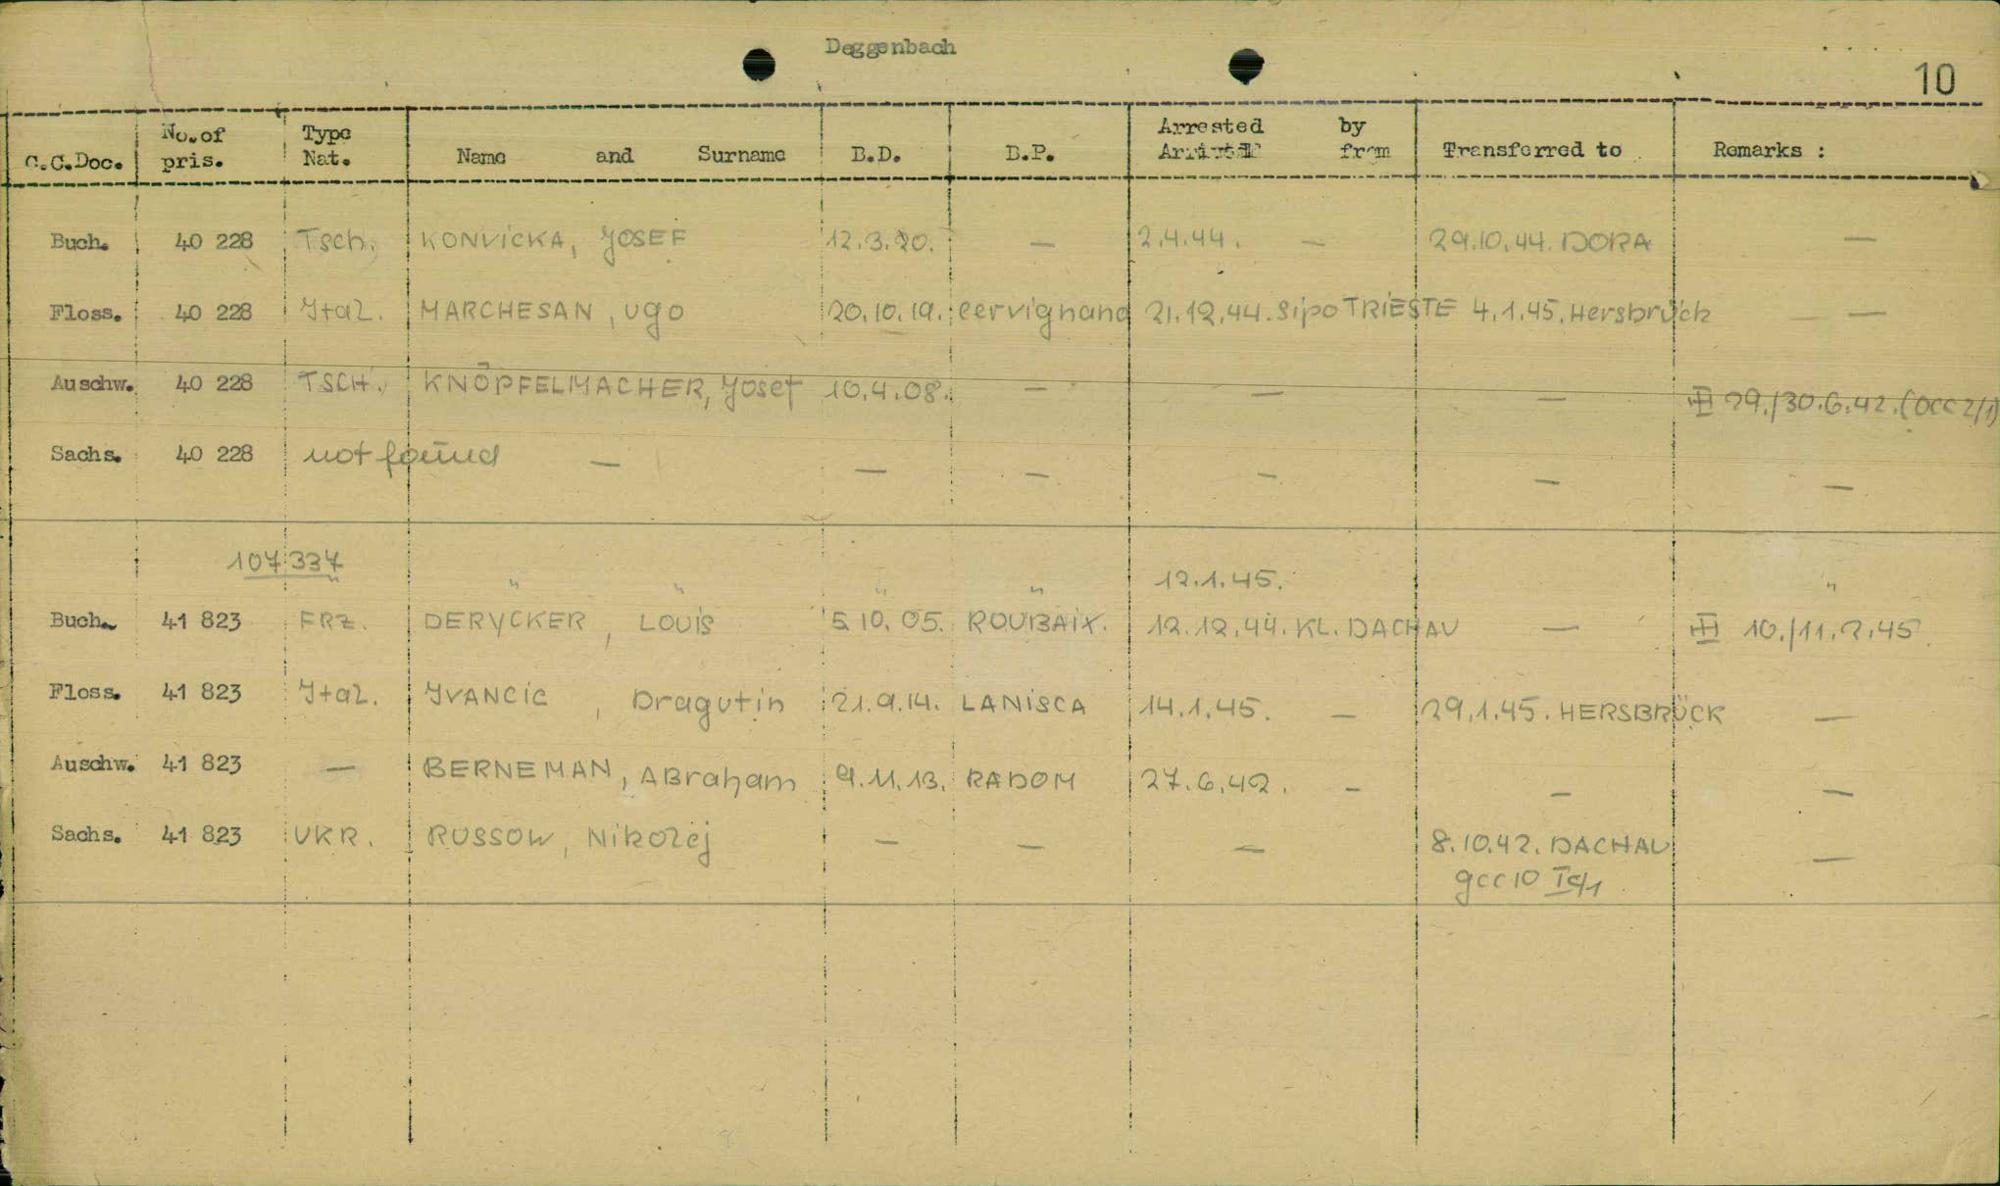 Deggenbach
10
C.C.Doc. No. of pris. Type Nat. Name and Surname B.D. B.P. Arrested by Arrived from Transferred to Remarks :
Buch. 40 228 Tsch. KONVICKA, JOSEF 12.3.20. — 2.4.44. — 29.10.44. DORA —
Floss. 40 228 Ital. MARCHESAN, Ugo 20.10.19. Cervignano 21.12.44. Sipo TRIESTE 4.1.45. Hersbrück —
Auschw. 40 228 TSCH. KNÖPFELMACHER, Josef 10.4.08. — — — 29./30.6.42. (OCC 2/1)
Sachs. 40 228 not found — — — — — —
107 337 " " " " 12.1.45. "
Buch. 41 823 FRZ. DERYCKER, LOUIS 5.10.05. ROUBAIX. 12.12.44. KL. DACHAU — 10./11.2.45
Floss. 41 823 Ital. IVANCIC, Dragutin 21.9.14. LANISCA 14.1.45. — 29.1.45. HERSBRÜCK —
Auschw. 41 823 — BERNEMAN, ABraham 9.11.13. RADOM 27.6.42. — — —
Sachs. 41 823 UKR. RUSSOW, Nikolej — — — 8.10.42. DACHAU —
gcc 10